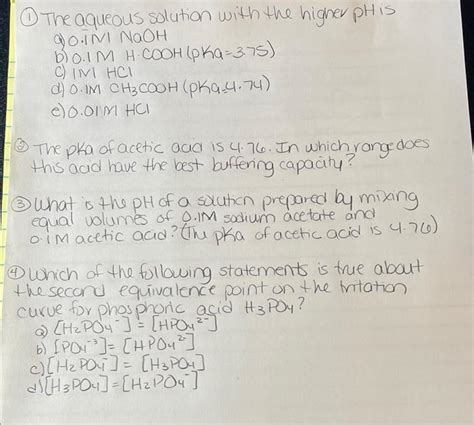 ① The aqueous solution with the higher pH is
a) 0.1M NaOH
b) 0.1M H·COOH (pKa=3.75)
c) 1M HCl
d) 0.1M CH3COOH (pKa=4.74)
e) 0.01M HCl
② The pKa of acetic acid is 4.76. In which range does
this acid have the best buffering capacity?
③ What is the pH of a solution prepared by mixing
equal volumes of 0.1M sodium acetate and
0.1M acetic acid? (The pKa of acetic acid is 4.76)
④ Which of the following statements is true about
the second equivalence point on the titration
curve for phosphoric acid H3PO4?
a) [H2PO4⁻] = [HPO4²⁻]
b) [PO4⁻³] = [HPO4²]
c) [H2PO4⁻] = [H3PO4]
d) [H3PO4] = [H2PO4⁻]